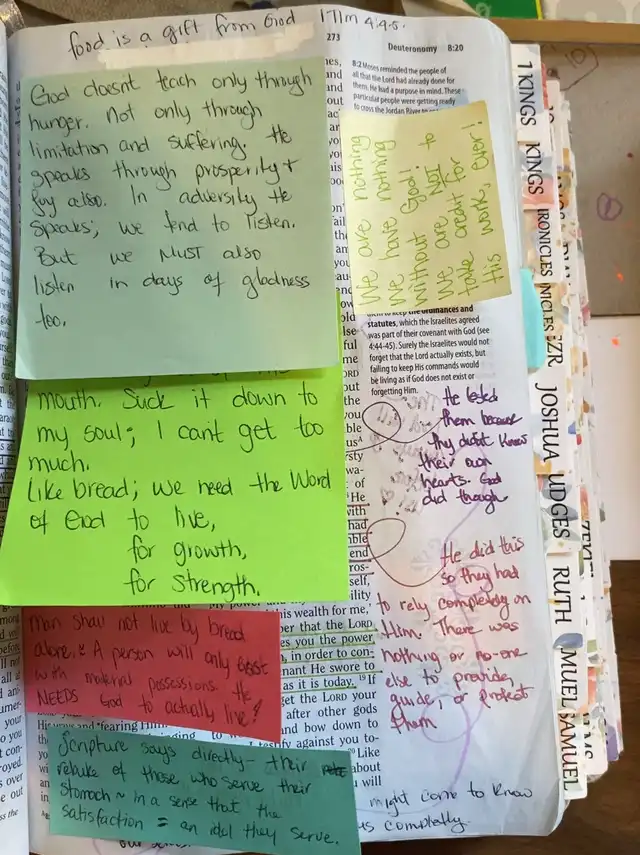 food is a gift from God 1 Tim 4:4-5.
273
Deuteronomy 8:20
God doesnt teach only through
hunger. Not only through
limitation and suffering. He
speaks through prosperity +
joy also. In adversity He
speaks; we tend to listen.
But we MUST also
listen in days of gladness
too.
8:2 Moses reminded the people of
all that the Lord had already done for
them. He had a purpose in mind. These
particular people were getting ready
to cross the Jordan River to
We are nothing
We have nothing
without God!
We are NOT to
take credit for
His work, ever!
ordinances and
statutes, which the Israelites agreed
was part of their covenant with God (see
4:44-45). Surely the Israelites would not
forget that the Lord actually exists, but
failing to keep His commands would
be living as if God does not exist or
forgetting Him.
mouth. Suck it down to
my soul; I can't get too
much.
Like bread; we need the Word
of God to live,
for growth,
for strength.
He tested
them because
they didnt know
their own
hearts. God
did though
He did this
so they had
to rely completely on
Him. There was
nothing or no-one
else to provide,
guide, or protect
them
man shall not live by bread
alone. A person will only exist
with material possessions. He
NEEDS God to actually live!
this wealth for me,'
that the LORD
you the power
in order to con-
He swore to
as it is today. 19 If
get the LORD your
after other gods
and bow down to
testify against you to-
Like
about
will
Scripture says directly- their
rebuke of those who serve their
stomach ~ in a sense that the
satisfaction = an idol they serve.
might come to know
us completely.
1 KINGS
KINGS
JOSHUA
JUDGES
RUTH
SAMUEL